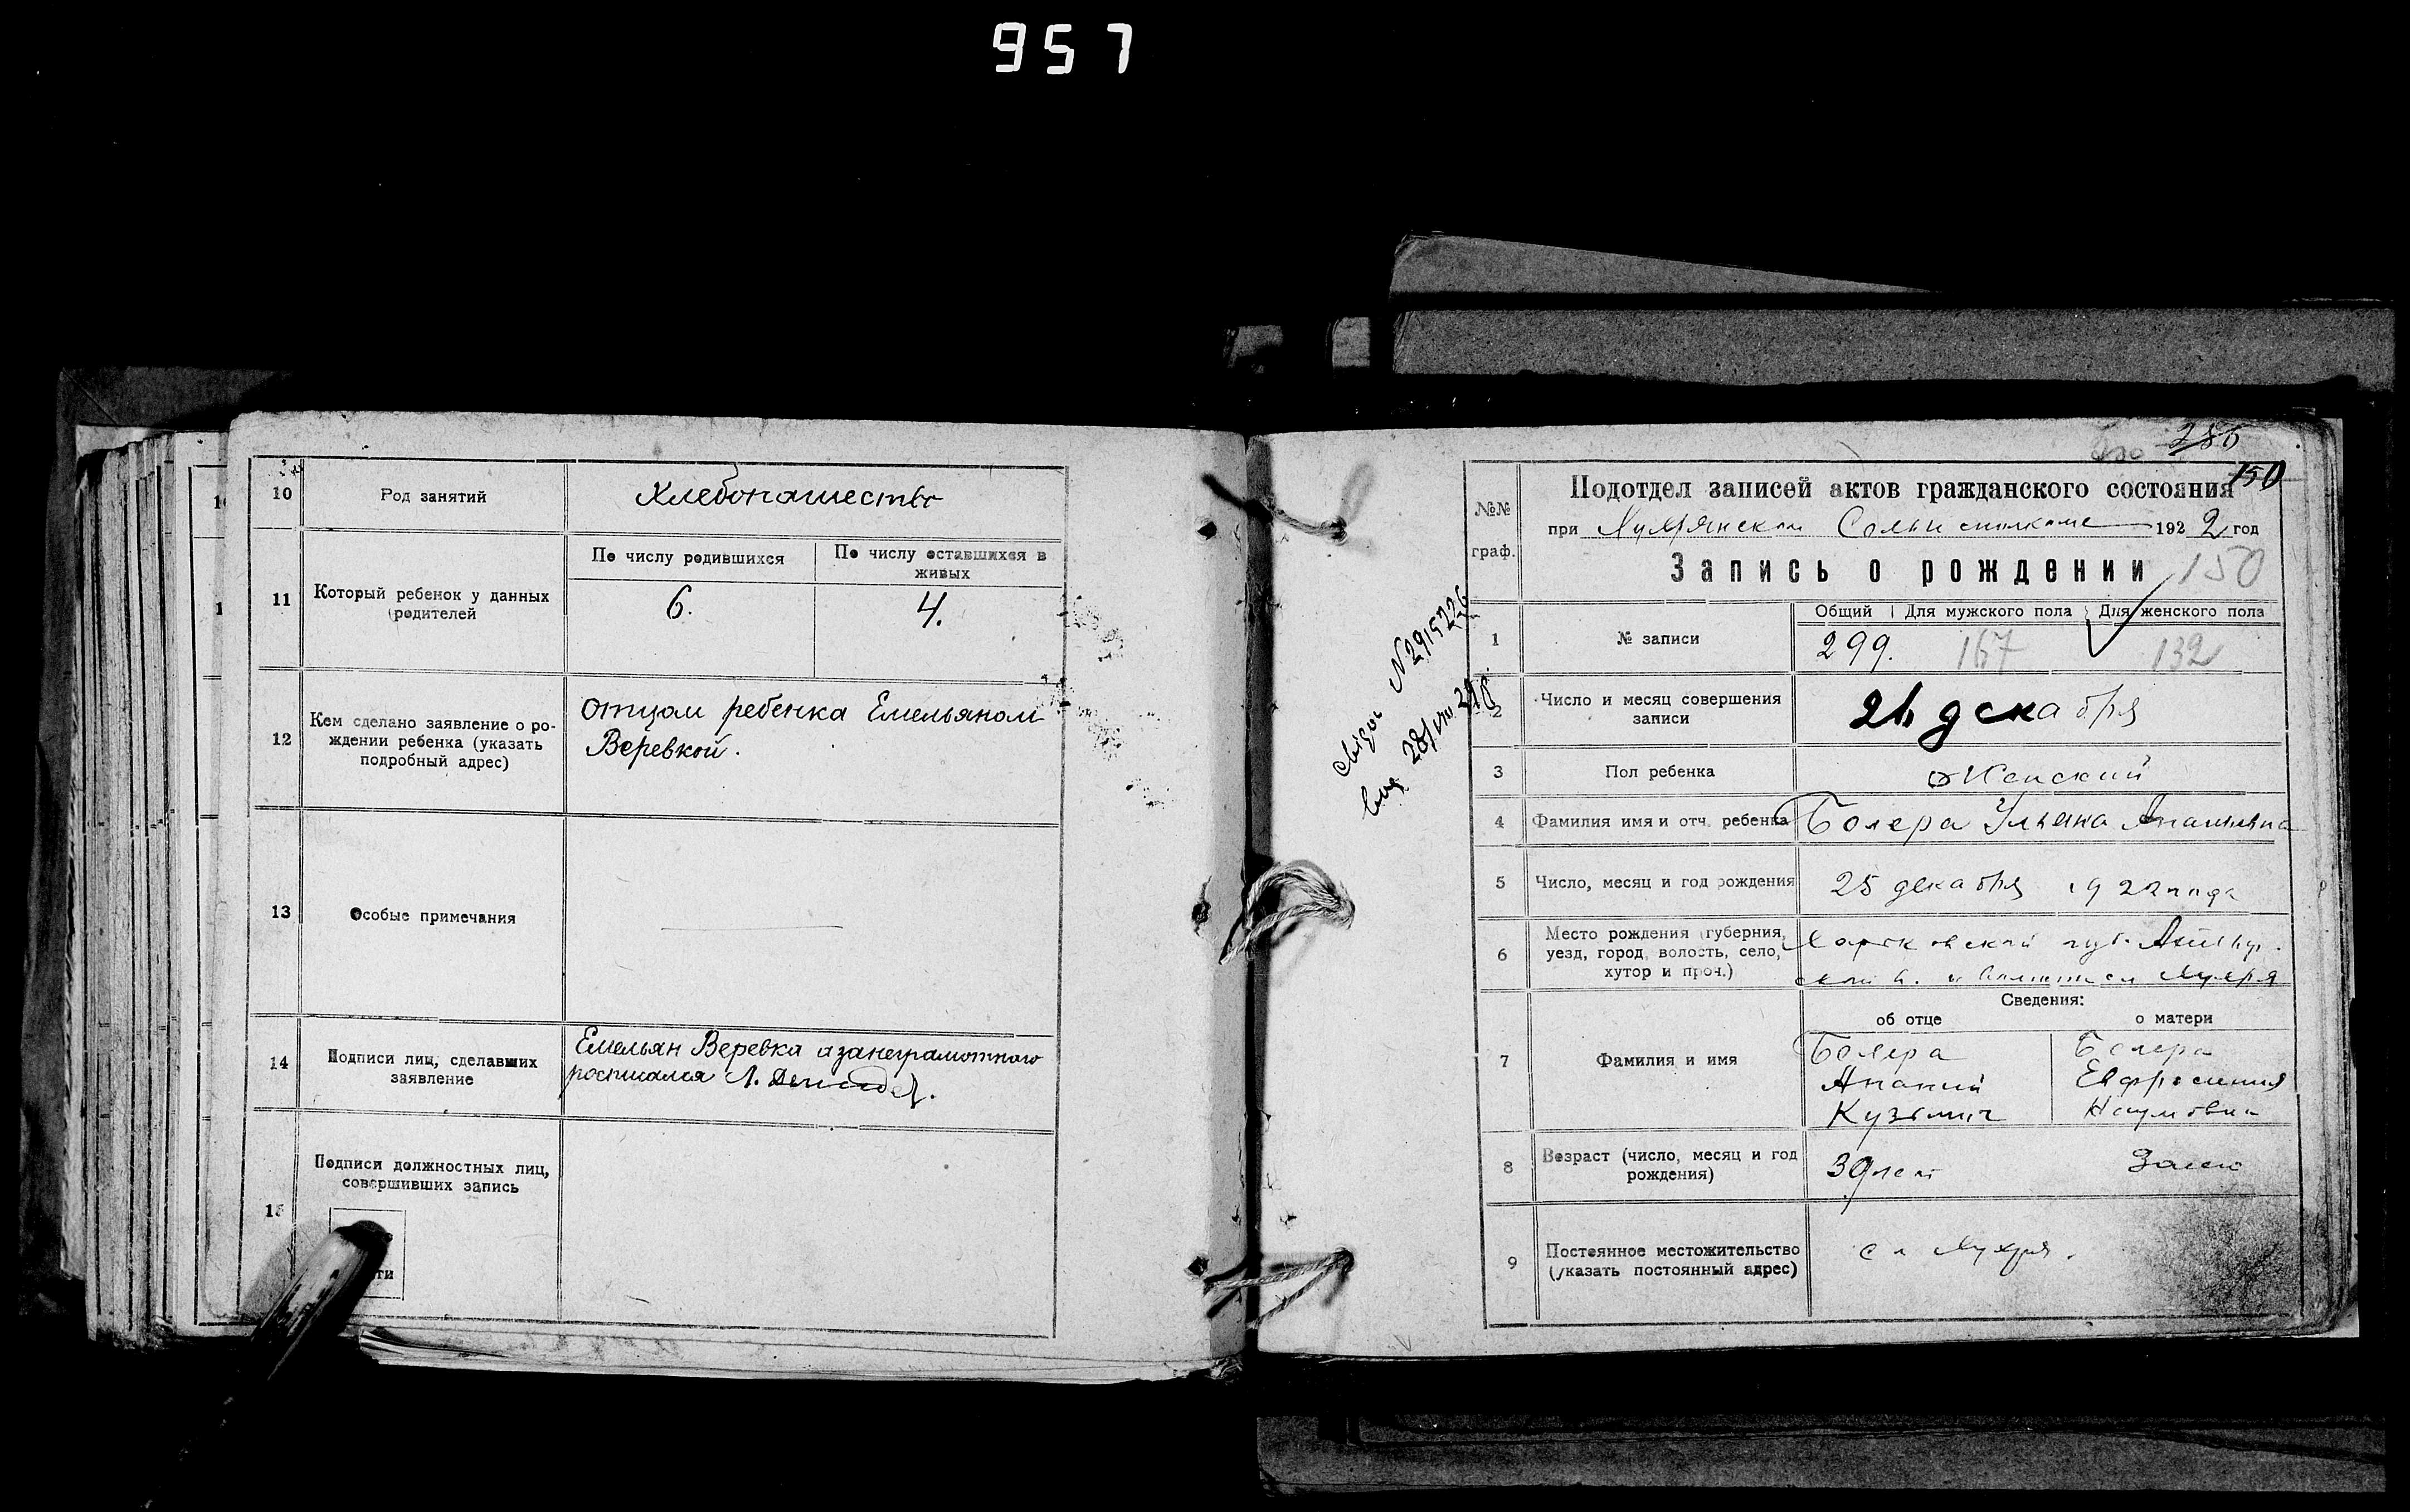 957
10
Род занятий
Хлебопашество
11
Который ребенок у данных
родителей
По числу родившихся
По числу оставшихся в
живых
6.
4.
12
Кем сделано заявление о ро-
ждении ребенка (указать
подробный адрес)
отцом ребенка Емельяном
Веревкой.
13
Особые примечания
14
Подписи лиц, сделавших
заявление
Емельян Веревка а за неграмотного
росписался Л.
15
Подписи должностных лиц,
совершивших запись
ти
286
150
№№
граф.
Подотдел записей актов гражданского состояния
при 1922 год
Запись о рождении
150
1
№ записи
Общий
Для мужского пола
Для женского пола
299.
167
132
N 2915226
2
Число и месяц совершения
записи
декабря
3
Пол ребенка
Женский
4
Фамилия имя и отч. ребенка
Ульяна Ананьевна
5
Число, месяц и год рождения
25 декабря 1922 года
6
Место рождения (губерния,
уезд, город, волость, село,
хутор и проч.)
Харьковской губ.
Сведения:
об отце
о матери
7
Фамилия и имя
Ананий
Кузьмич
Евфросиния
Наумовна
8
Возраст (число, месяц и год
рождения)
39 лет
9
Постоянное местожительство
(указать постоянный адрес)